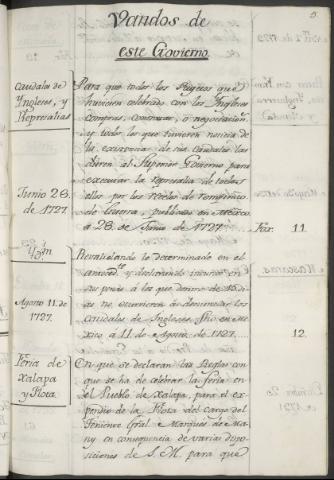 5.
Vandos de
este Govierno.
Caudales de
Yngleses, y
Represalias
Para que todos los Sugetos que
huvieren celebrado con los Yngleses
compras, comunicar, o negociacion
y todos los que tuvieren noticia de
la existencia de sus caudales las
dieren al Superior Govierno para
executar la represalia de todos
ellos por los recelos de rompimto.
de Guerra, publicado en Mexico
á 28 de Junio de 1727.
Fox. 11.
Junio 28.
de 1727.
Revalidando lo determinado en el
anteced.te y declarando incursos en
su pena á los que dentro de 15 di-
as no ocurrieren á denunciar los
caudales de Yngleses, fho en Me-
xico á 11 de Agosto de 1727.
12.
Agosto 11. de
1727.
Feria de
Xalapa
y Flota.
En que se declaran las Reglas con
que se ha de celebrar la feria en
el Pueblo de Xalapa, para el ex-
pendio de la Flota del cargo del
Teniente Gral. e Marques de Ma-
ry en consequencia de varias dispo-
siciones de S.M. para que